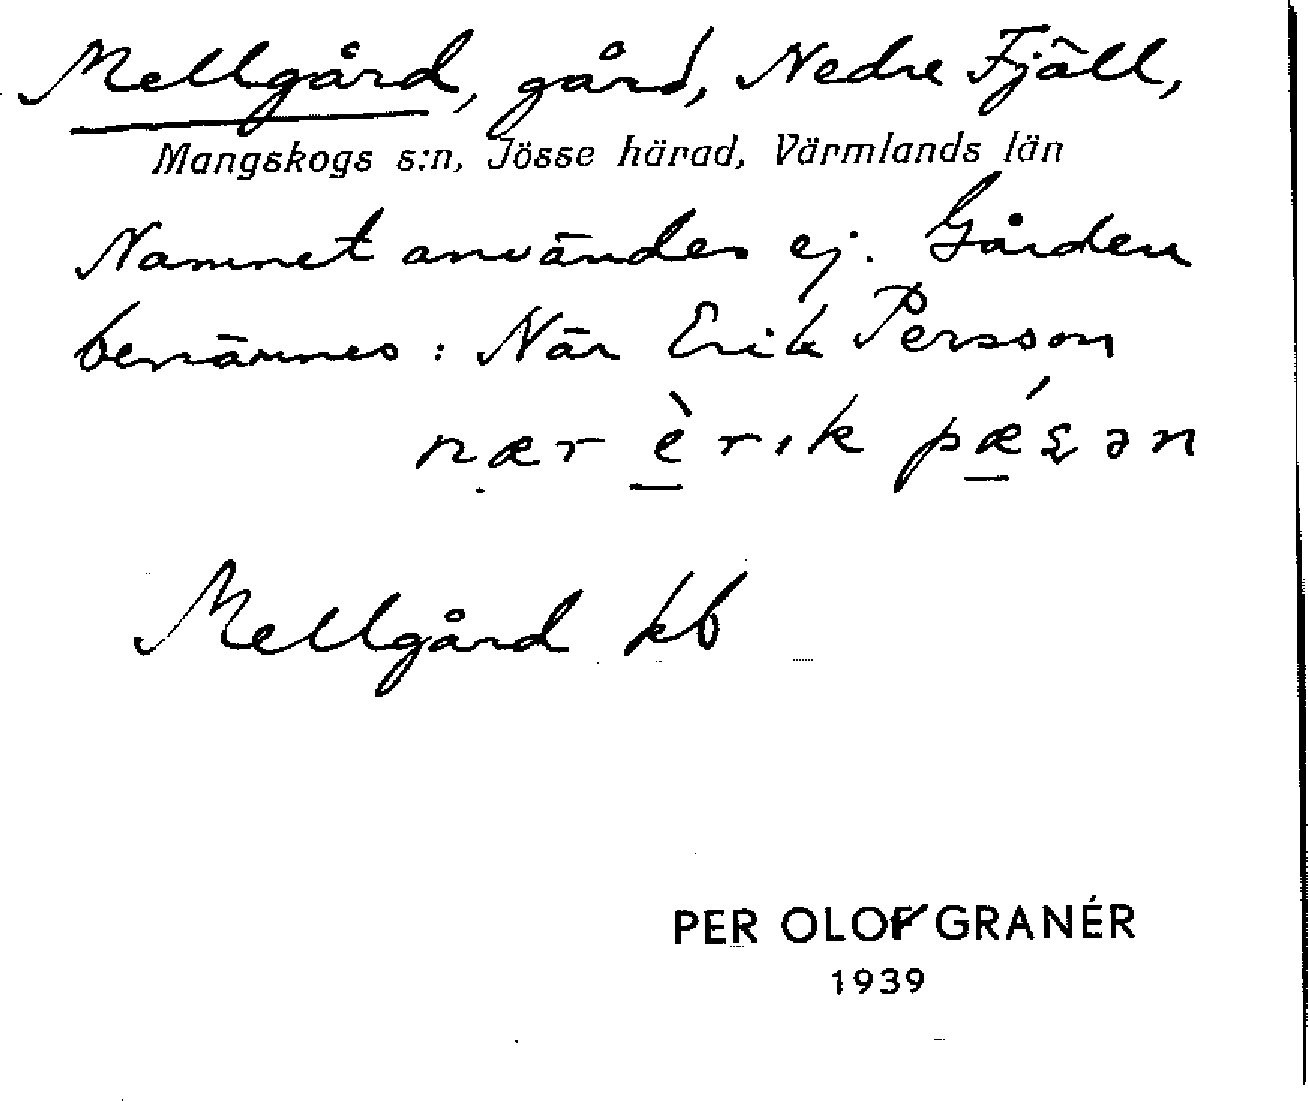 Mellgård, gård, Nedre Fjäll,
Mangskogs s:n, Jösse härad, Värmlands län
Namnet användes ej. Gården
benämnes: När Erik Persson
nær èrik pǽʂən
Mellgård kb
PER OLOF GRANÉR
1939